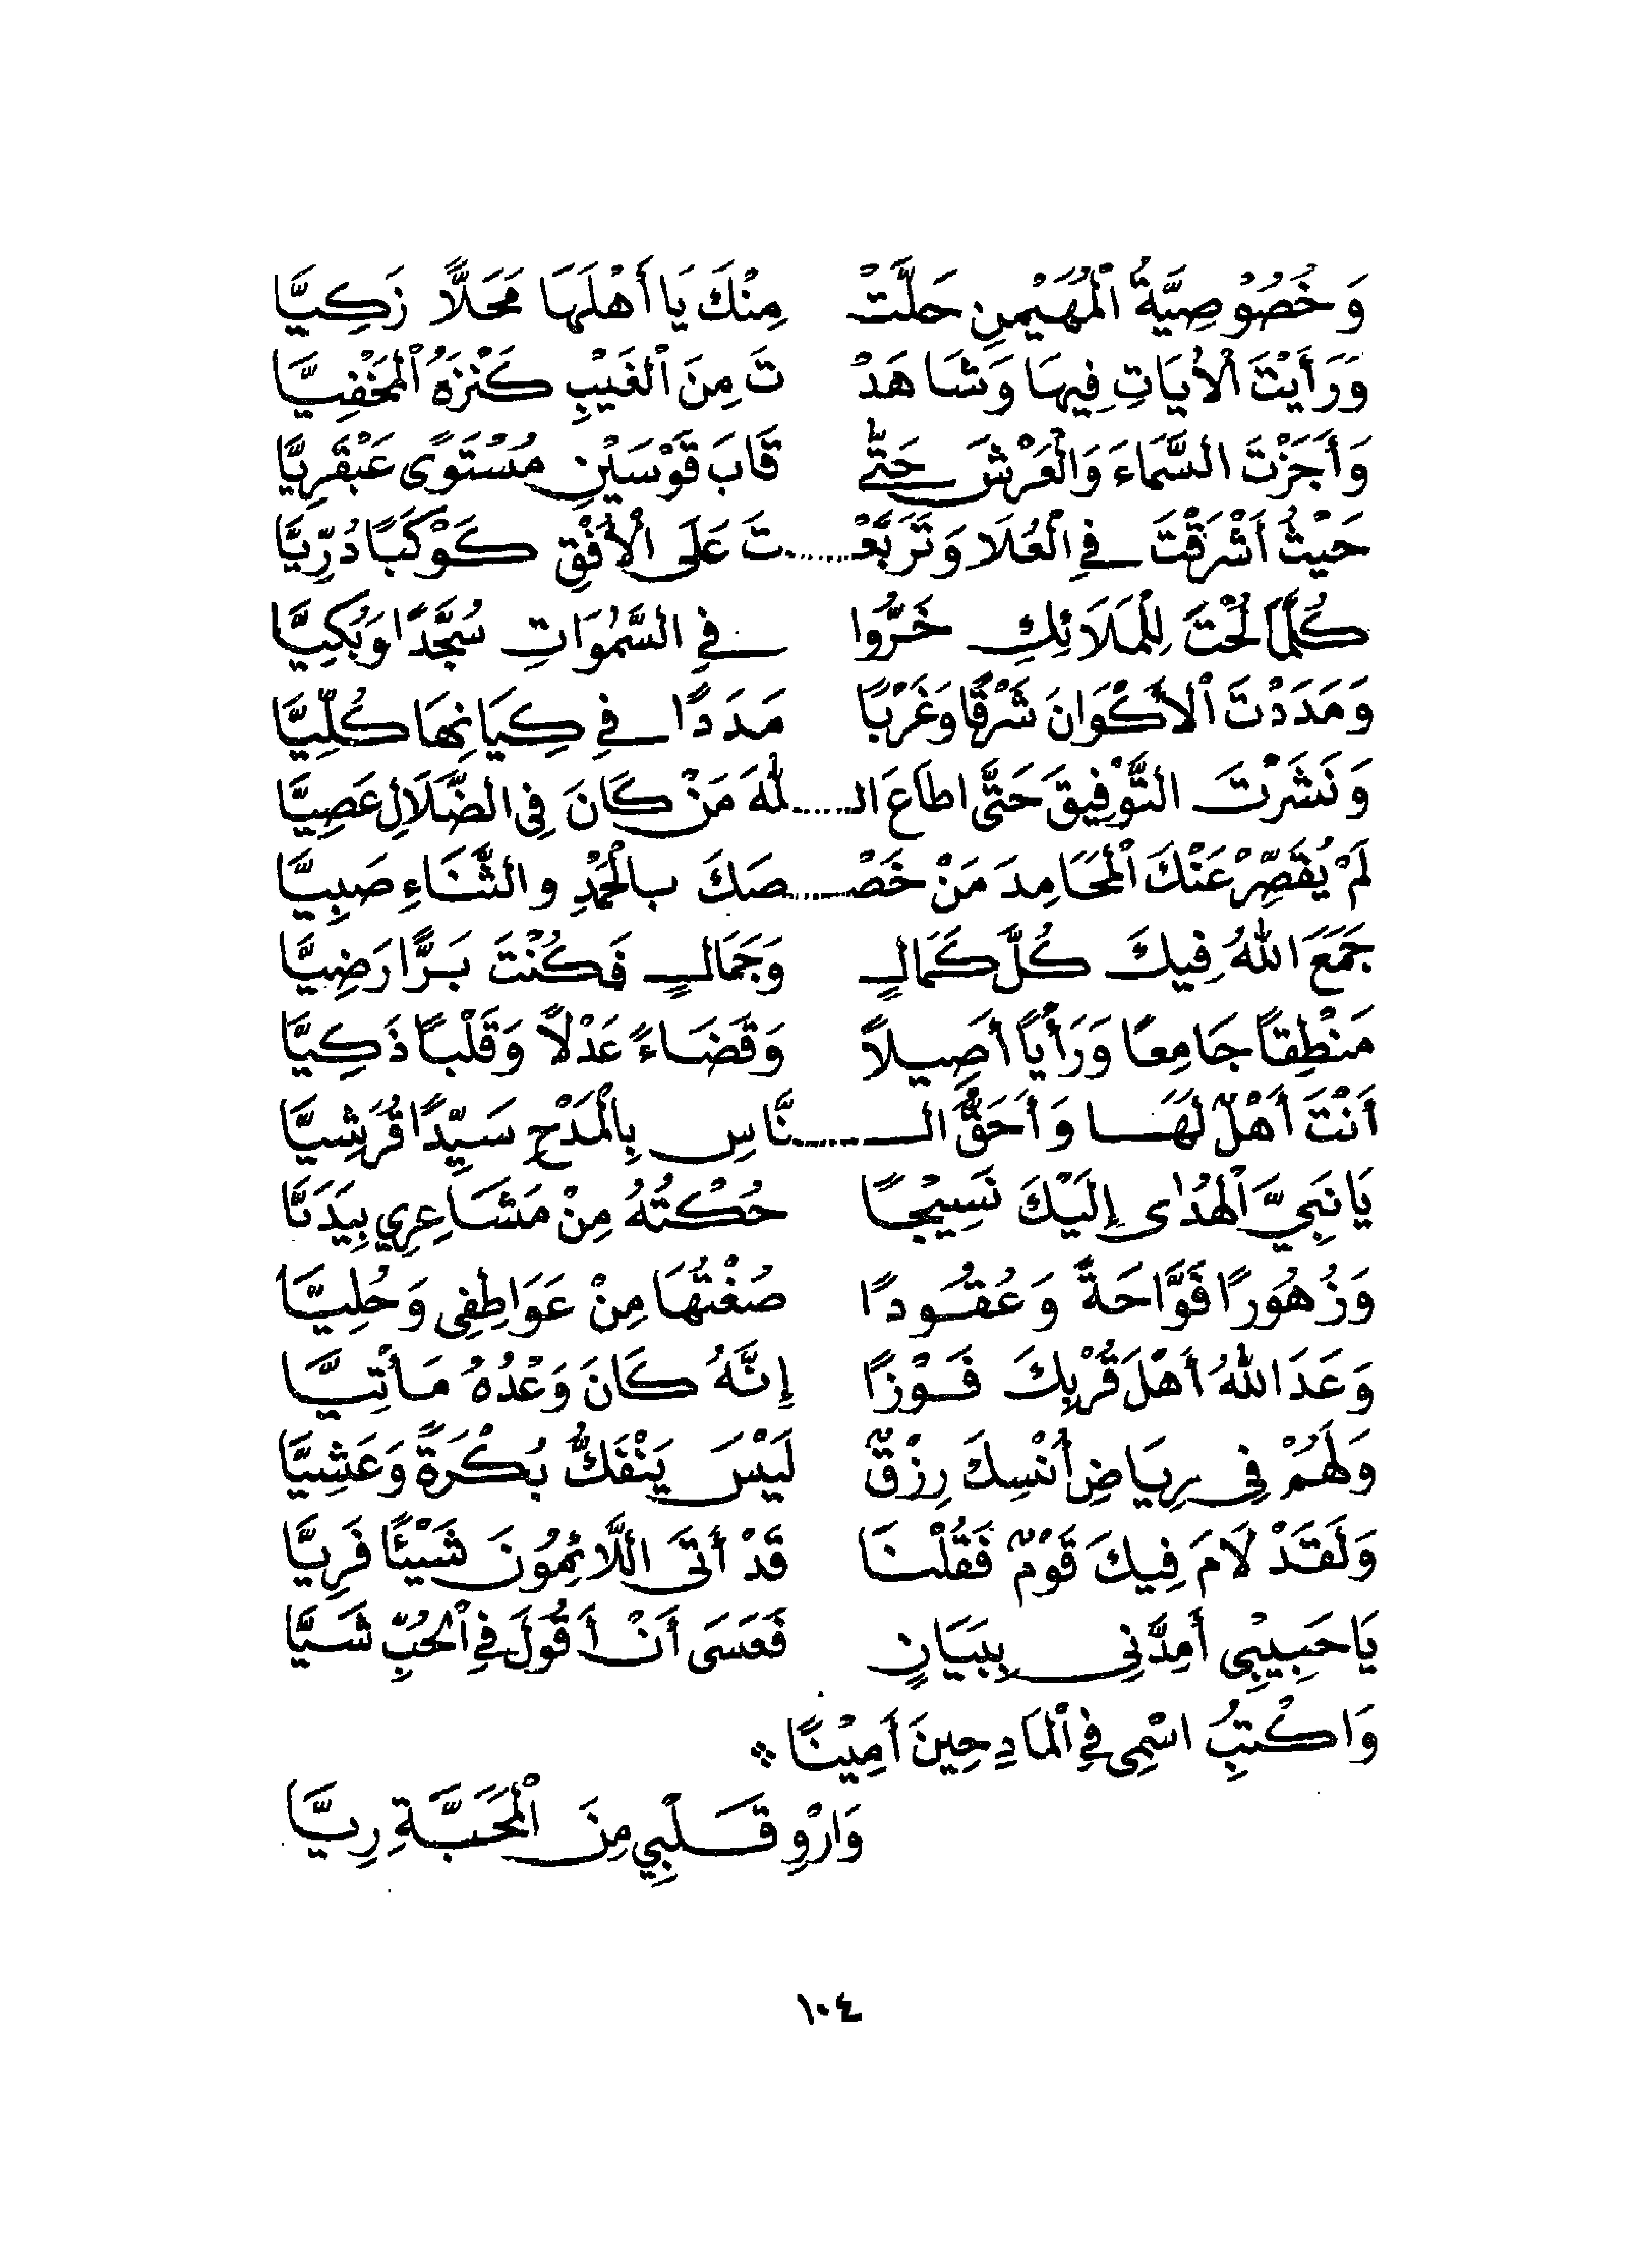 وَخُصُوْصِيَّةُ الْمُهَيْمِنِ حَلَّتْ مِنْكَ يَا أَهْلَهَا مَحَلًّا زَكِيًّا
وَرَأَيْتَ الْأَيَاتِ فِيهَا وَشَاهَدْ تَ مِنَ الْغَيْبِ كَنْزَهُ الْمَخْفِيَّا
وَأَجَزْتَ السَّمَاءَ وَالْعَرْشَ حَتَّى قَابَ قَوْسَيْنِ مُسْتَوًى عَبْقَرِيًّا
حَيْثُ أَشْرَقْتَ فِي الْعُلَا وَتَرَبَّعْ......تَ عَلَى الْأُفْقِ كَوْكَبًا دُرِّيًّا
كُلَّمَا لُحْتَ لِلْمَلَائِكِ خَرُّوا فِي السَّمٰوَاتِ سُجَّدًا وَبُكِيًّا
وَمَدَدْتَ الْأَكْوَانَ شَرْقًا وَغَرْبًا مَدَدًا فِي كِيَانِهَا كُلِّيًّا
وَنَشَرْتَ التَّوْفِيقَ حَتَّى اطَاعَ الـ.....لهَ مَنْ كَانَ فِي الضَّلَالِ عَصِيًّا
لَمْ يُقَصِّرْ عَنْكَ الْمَحَامِدَ مَنْ خَصْـ.....صَكَ بِالْحَمْدِ والثَّنَاءِ صَبِيًّا
جَمَعَ اللهُ فِيكَ كُلَّ كَمَالٍ وَجَمَالٍ فَكُنْتَ بَرًّا رَضِيًّا
مَنْطِقًا جَامِعًا وَرَأْيًا أَصِيلًا وَقَضَاءً عَدْلًا وَقَلْبًا ذَكِيًّا
أَنْتَ أَهْلٌ لَهَا وَأَحَقُّ الـ.....نَّاسِ بِالْمَدْحِ سَيِّدًا قُرَشِيًّا
يَا نَبِيَّ الْهُدٰى إِلَيْكَ نَسِيْجًا حُكْتُهُ مِنْ مَشَاعِرِي بِيَدَيَّا
وَزُهُورًا فَوَّاحَةً وَعُقُودًا صُغْتُهَا مِنْ عَوَاطِفِى وَحُلِيًّا
وَعَدَ اللهُ أَهْلَ قُرْبِكَ فَوْزًا إِنَّهُ كَانَ وَعْدُهُ مَأْتِيًّا
وَلَهُمْ فِى رِيَاضِ أُنْسِكَ رِزْقٌ لَيْسَ يَنْفَكُّ بُكْرَةً وَعَشِيًّا
وَلَقَدْ لَامَ فِيكَ قَوْمٌ فَقُلْنَا قَدْ أَتَى اللَّائِمُونَ شَيْئًا فَرِيًّا
يَا حَبِيْبِى أَمِدَّنِى بِبَيَانٍ فَعَسَى أَنْ أَقُولَ فِي الْحُبِّ شَيًّا
وَاكْتُبِ اسْمِى فِي الْمَادِحِينَ أَمِيْنًا ※
وَارْوِ قَلْبِي مِنَ الْمَحَبَّةِ رِيًّا
١٠٤